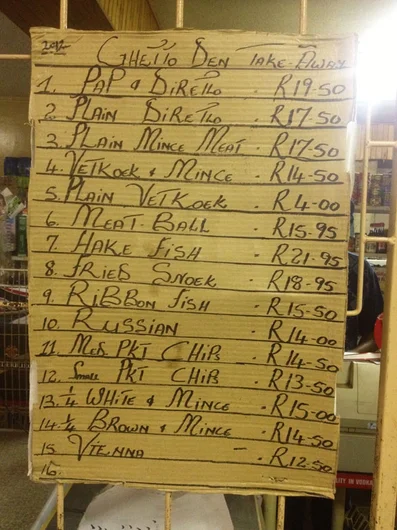 2012 GHETTO DEN TAKE-AWAY
1. PAP & DIRETLO . R19-50
2. PLAIN DIRETLO . R17-50
3. PLAIN MINCE MEAT . R17-50
4. VETKOEK & MINCE . R14-50
5. PLAIN VETKOEK . R4-00
6. MEAT-BALL . R15-95
7. HAKE FISH . R21-95
8. FRIED SNOEK . R18-95
9. RIBBON FISH . R15-50
10. RUSSIAN . R14-00
11. MED PKT CHIPS . R14-50
12. Small PKT CHIPS . R13-50
13. 1/4 WHITE & MINCE . R15-00
14. 1/4 BROWN & MINCE . R14-50
15. VIENNA - . R12-50
16.